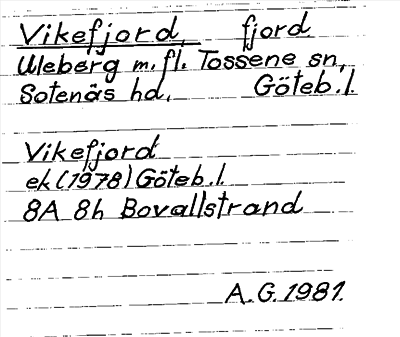 Vikefjord, fjord
Uleberg m.fl. Tossene sn,
Sotenäs hd, Göteb.l.
Vikefjord
ek (1978) Göteb.l.
8A 8h Bovallstrand
A.G. 1981.